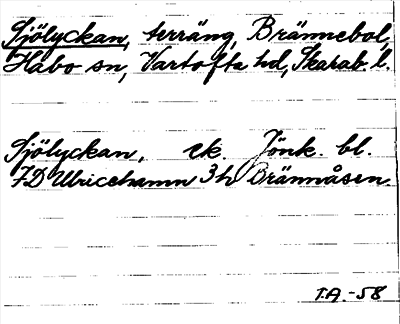 Sjölyckan, terräng, Brännebol,
Habo sn, Vartofta hd, Skarab. l.
Sjölyckan, ek. Jönk. bl.
7D Ulricehamn 3h Brännåsen.
T.A.-58